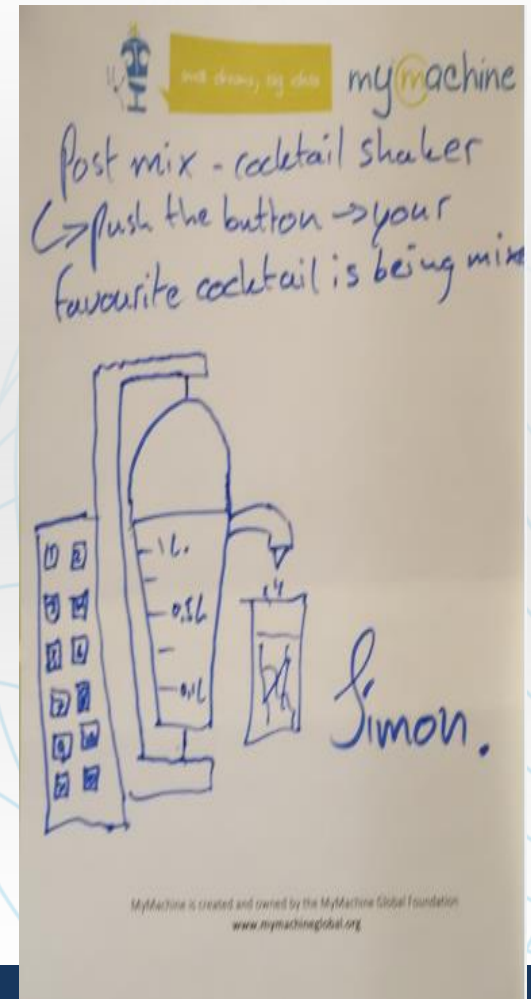 mymachine
Post mix - cocktail shaker
↳ push the button → your
favourite cocktail is being mixe
1 2
3 4
5 6
7
9 10
1L.
0,5L
0,1L
Simon.
MyMachine is created and owned by the MyMachine Global Foundation
www.mymachineglobal.org